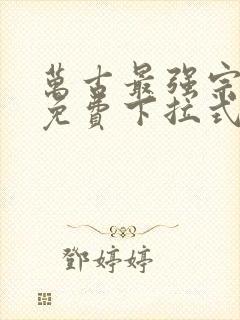 萬古最强宗
免費下拉式
鄧婷婷